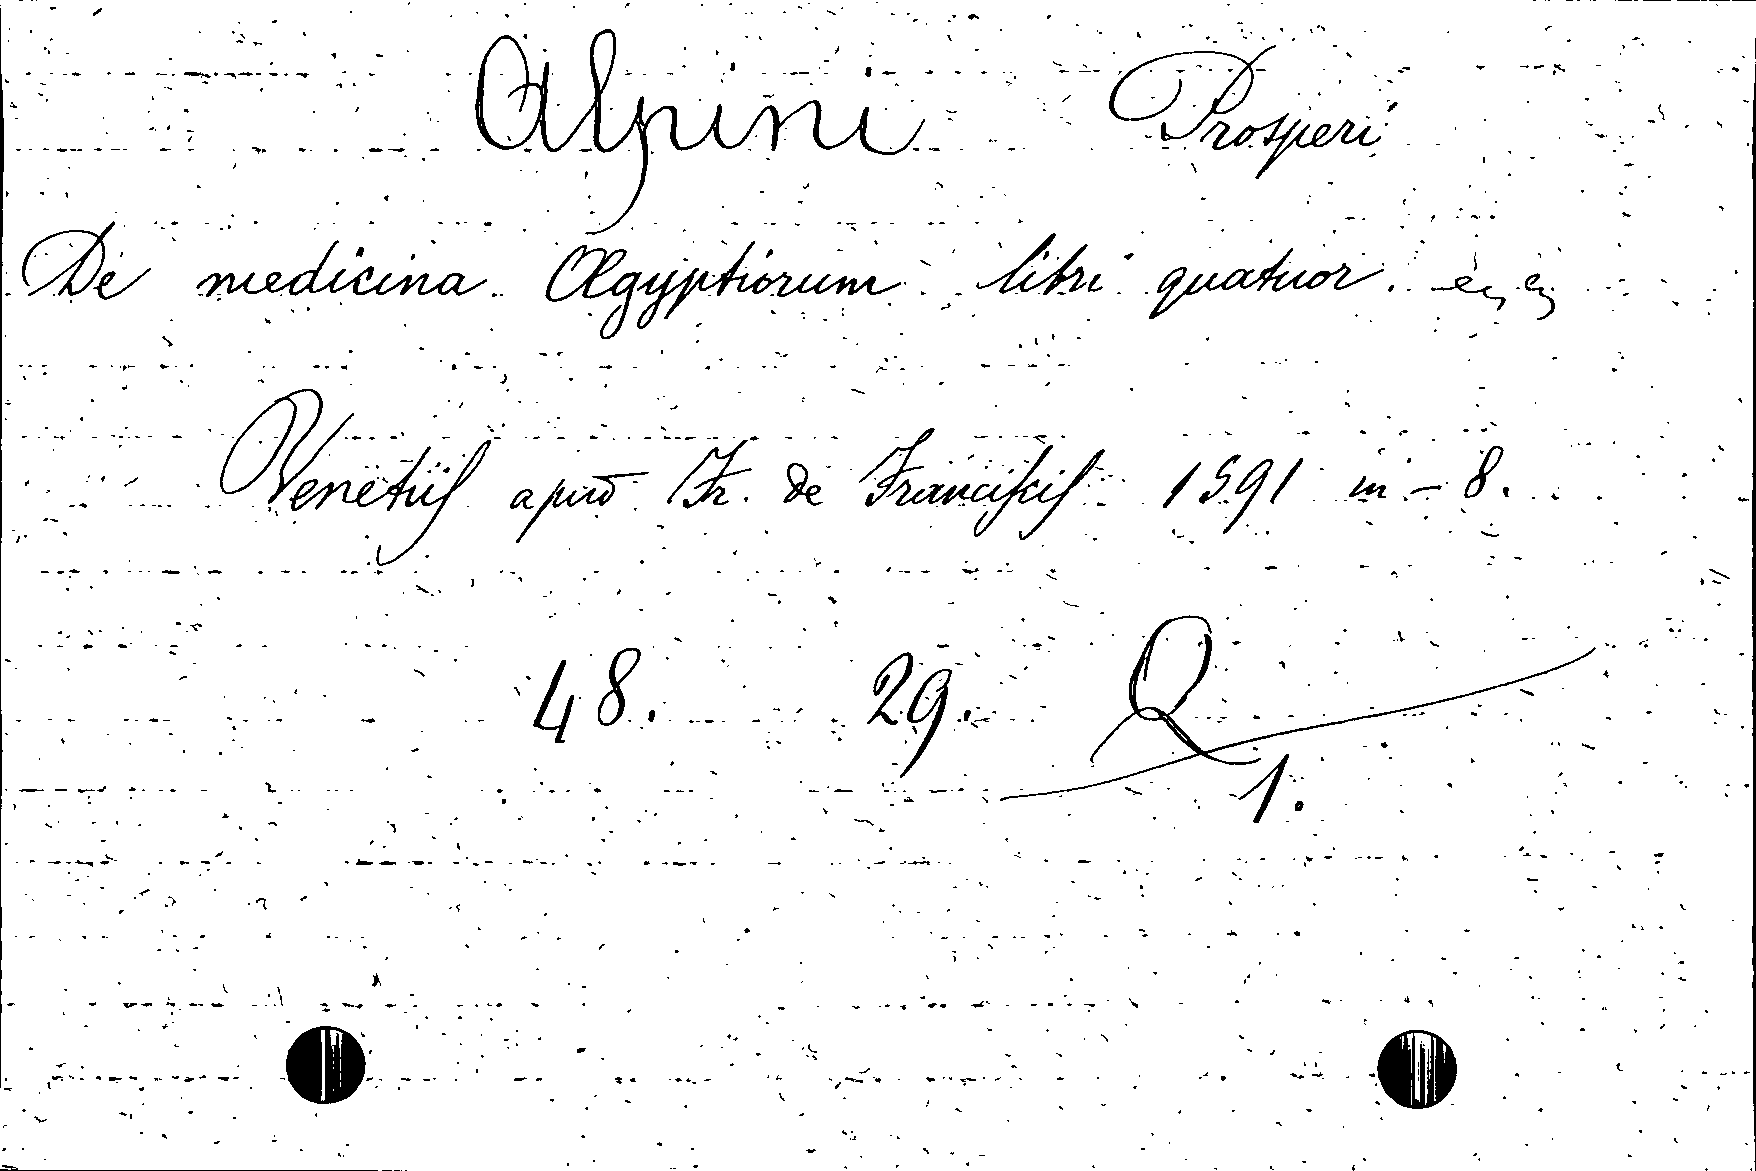 Alpini Prosperi
De medicina Ægyptiorum libri quatuor.
Venetiis apud Fr. de Franciscis 1591 in-8.
48. 29. Q
1.